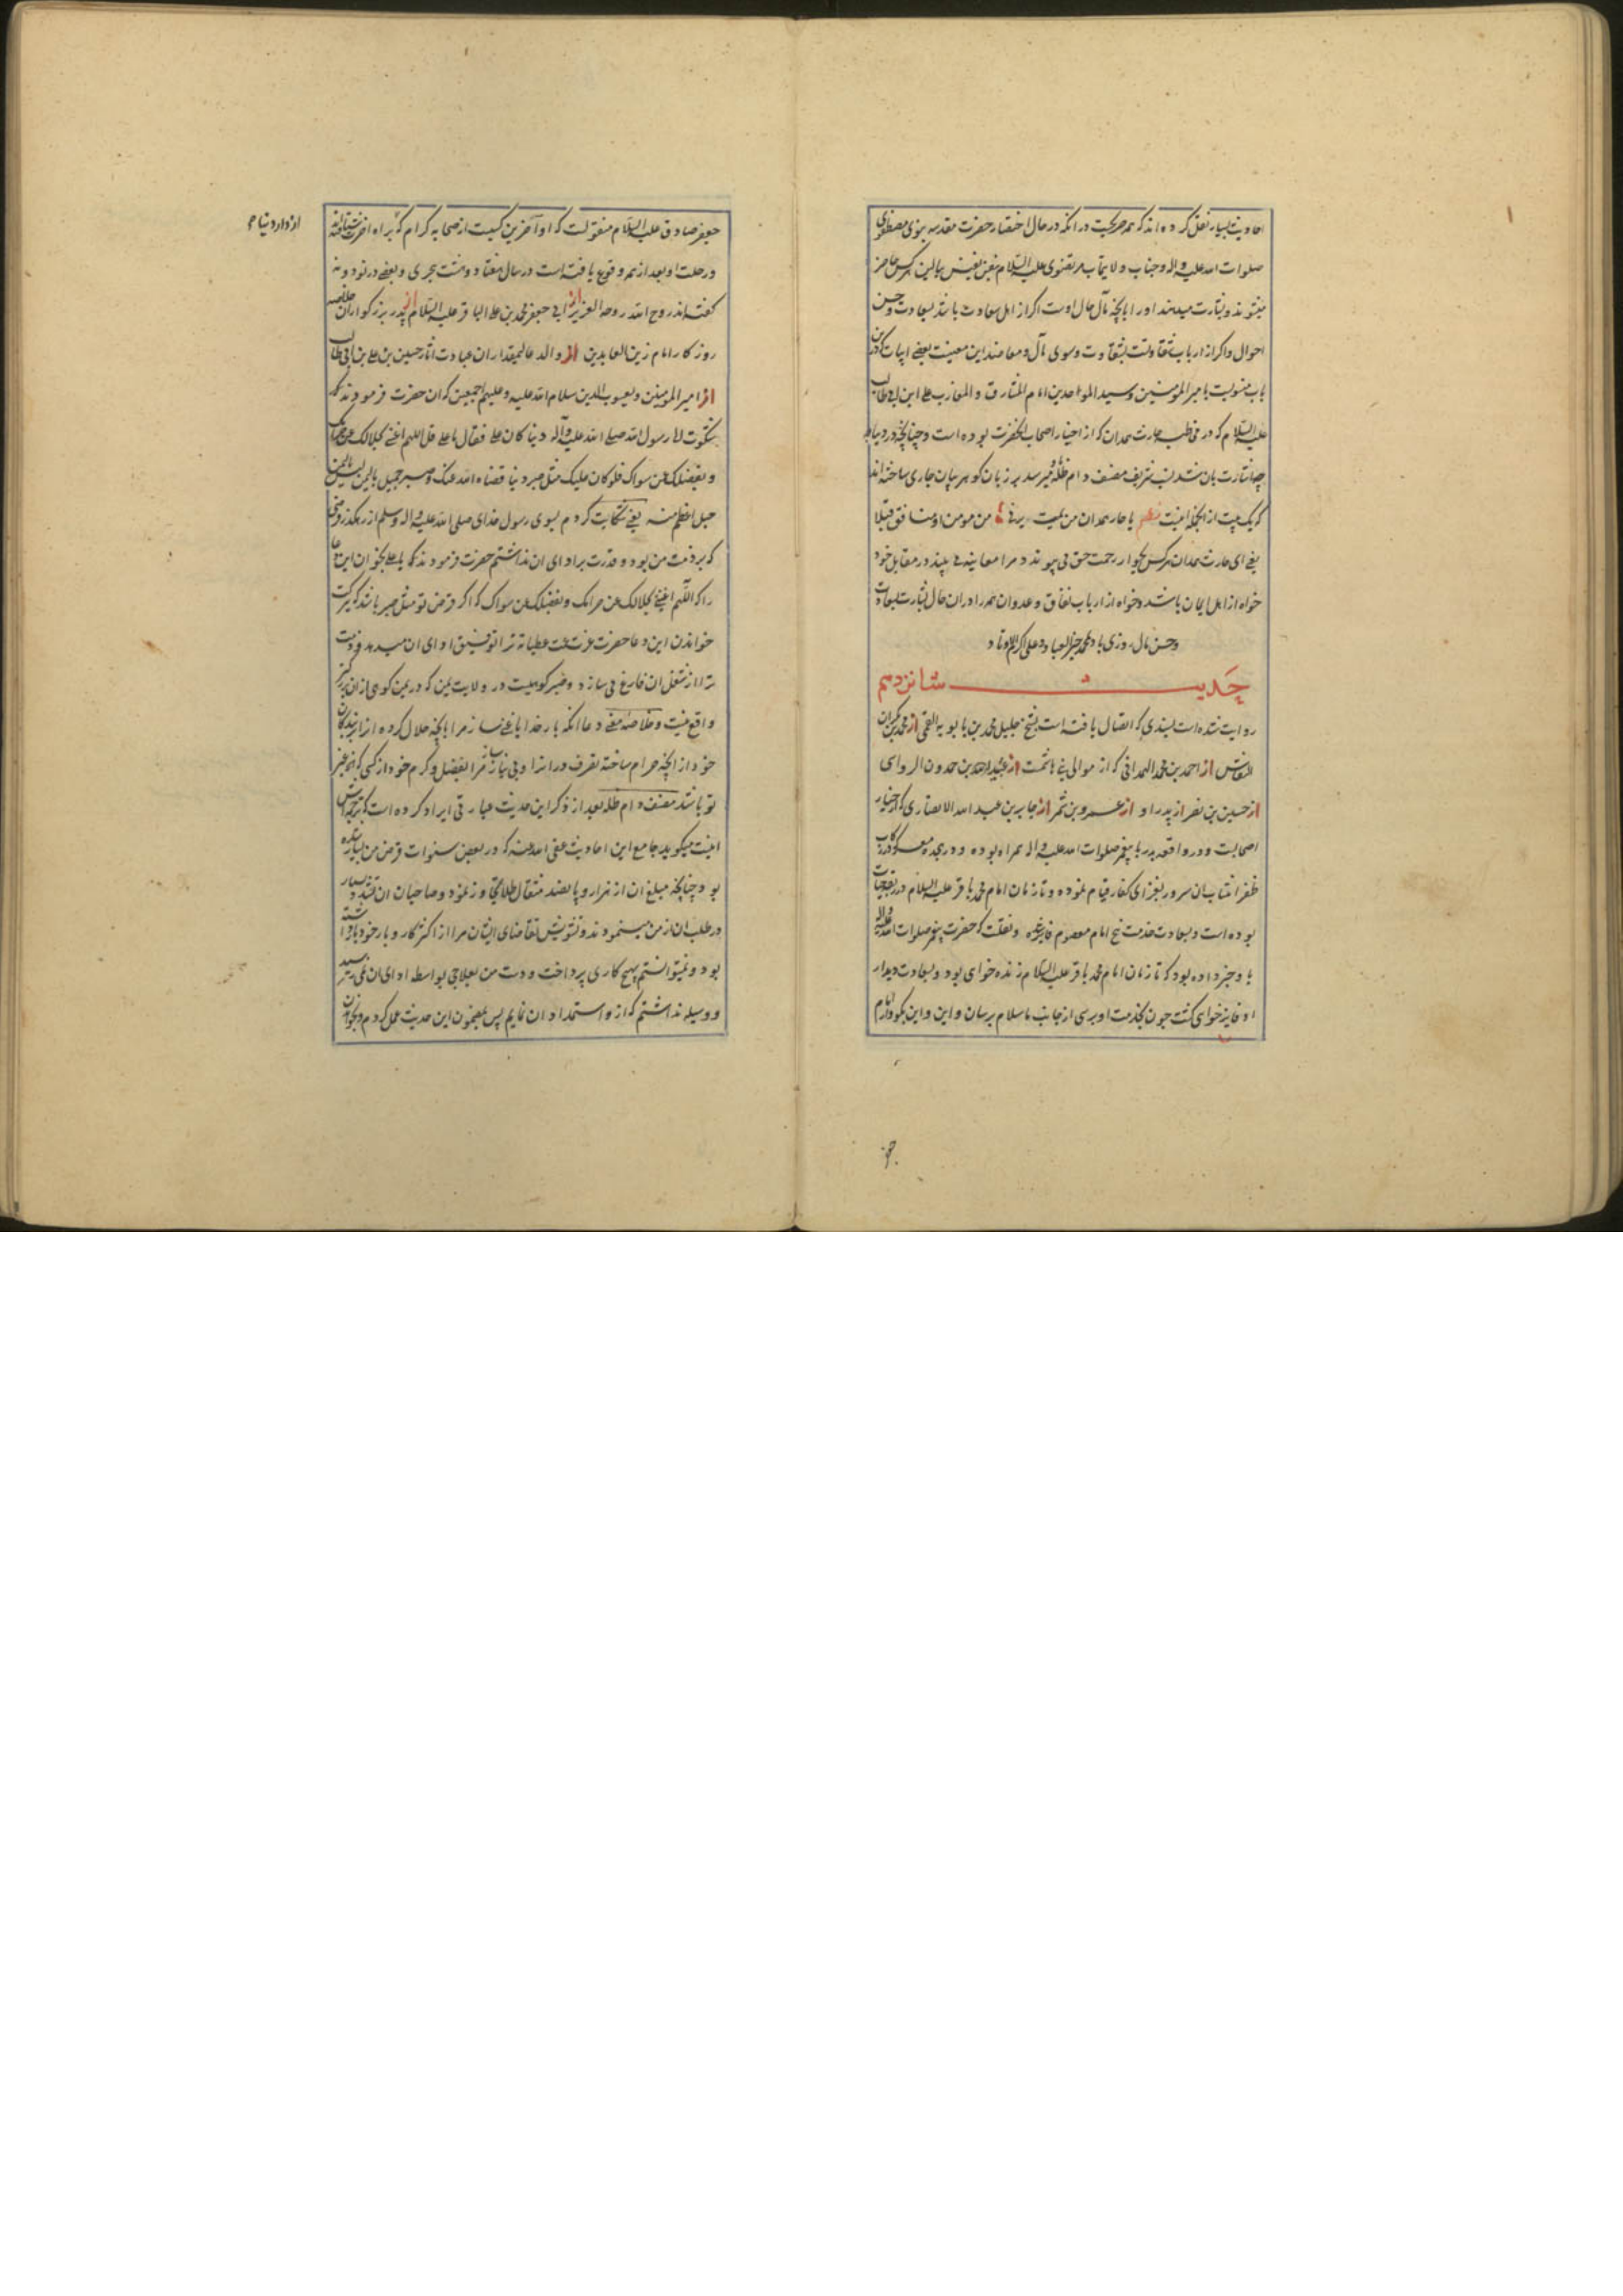 احادیث بسیار نقل کرده اند که همه صریحست در انکه در حال احتضار حضرت مقدسه نبوی مصطفوی
صلوات الله علیه و اله و جناب ولایتماب مرتضوی علیه السلام بنفس نفیس ببالین هر کس حاضر
میشوند و بشارت میدهند او را بانچه مآل حال اوست اگر از اهل سعادت باشد بسعادت و حسن
احوال و اکر از ارباب شقاوتست بشقاوت و سوی مآل و معاضد این معینست بعضی ابیات که درین
باب منسوبست بامیر المومنین و سید الموحدین امام المشارق و المغارب علی ابن ابی طالب
علیه السلام که در مخاطبه حارث همدان که از اخیار اصحاب آنحضرت بوده است و چنانچه در دیباچه
اشارت بان شد نسب شریف مصنف دام ظله باو میرسد بر زبان کوهر بیان جاری ساخته اند
که یک بیت از انجمله اینست نظم یا حار همدان من یمت یرنی من مومن او منافق قبلا
یعنی ای حارث همدان هر کس بجوار رحمت حق می پیوندد مرا معاینه می بیند در مقابل خود
خواه از اهل ایمان باشد و خواه از ارباب نفاق و عدوان همه را در ان حال بشارت بسعادت
و حسن مآل روزی باد بمحمد خیر العباد و علی اکرم الاوتاد
حدیث شانزدهم
روایت شده است بسندی که اتصال یافته است بشیخ جلیل محمد بن بابویه القمی از محمد بن بکران
النقاش از احمد بن محمد الهمدانی که از موالی بنی هاشمست از عبید الله بن حمدون الروای
از حسین بن نصر از پدر او از عمرو بن شمر از جابر بن عبد الله الانصاری که از اخیار
اصحابست و در واقعه بدر با پیغمبر صلوات الله علیه و اله همراه بوده و در هجده معرکه در رکاب
ظفر انتساب ان سرور بغزای کفار قیام نموده و تا زمان امام محمد باقر علیه السلام در قید حیات
بوده است و بسعادت خدمت پنج امام معصوم فایز شده و نقلست که حضرت پیغمبر صلوات الله علیه و اله
باو خبر داده بود که تا زمان امام محمد باقر علیه السلام زنده خواهی بود و بسعادت دیدار
او فایز خواهی کشت چون بخدمت او برسی از جانب ما سلام برسان و این و این بکو و از امام
جعفر صادق علیه السلام منقولست که او آخرین کسیست از صحابه کرام که براه آخرت شتافته
از دار دنیا
و رحلت او بعد از همه وقوع یافته است در سال هفتاد و هشت هجری و بعضی در نود و نه
کفته اند روح الله روحه العزیز از ابی جعفر محمد بن علی الباقر علیه السلام از پدر بزرکوار ان خلاصه
روزکار امام زین العابدین از والد عالیمقدار ان عبادت اثار حسین بن علی بن ابی طالب
از امیر المومنین و یعسوب الدین سلام الله علیه و علیهم اجمعین که ان حضرت فرمودند که
شکوت الی رسول الله صلی الله علیه و آله دینا کان علی فقال یا علی قل اللهم اغننی بحلالک عن حرامک
و بفضلک عمن سواک فلو کان علیک مثل صبیر دینا قضاه الله عنک و صبیر جبل بالیمن لیس بالیمن
جبل اعظم منه یعنی شکایت کردم بسوی رسول خدای صلی الله علیه و اله و سلم از رهکذر قرضی
که بر ذمت من بود و قدرت بر ادای ان نداشتم حضرت فرمودند که یا علی بخوان این دعا
را که اللهم اغننی بحلالک عن حرامک و بفضلک عمن سواک که اکر قرض تو مثل صبیر باشد که ببرکت
خواندن این دعا حضرت عزت عمت عطیاته ترا توفیق ادای ان میدهد و ذمت
ترا از شغل ان فارغ می سازد و صبیر کوهیست در ولایت یمن که در یمن کوهی از ان بزرکتر
واقع نیست و خلاصه معنی دعا انکه بار خدایا غنی ساز مرا بانچه حلال کرده از برای بندکان
خود از انچه حرام ساخته تصرف در انرا و بی نیاز ساز مرا بفضل و کرم خود از کسی که انکس غیر
تو باشد مصنف دام ظله بعد از ذکر این حدیث عبارتی ایراد کرده است که ترجمه اش
اینست میکوید جامع این احادیث عفی الله عنه که در بعضی سنوات قرض من بسیار شده
بود چنانچه مبلغ ان از هزار و پانصد مثقال طلا تجاوز نمود و صاحبان ان تشدد بسیار
در طلب ان از من مینمودند و تشویش تقاضای ایشان مرا از اکثر کار و بار خود باز داشته
بود و نمیتوانستم بهیچ کاری پرداخت و دست من بعلاجی بواسطه ادای ان نمی رسید
و وسیله نداشتم که از و استمداد ان نمایم پس بمضمون این حدیث عمل کردم و بخواندن